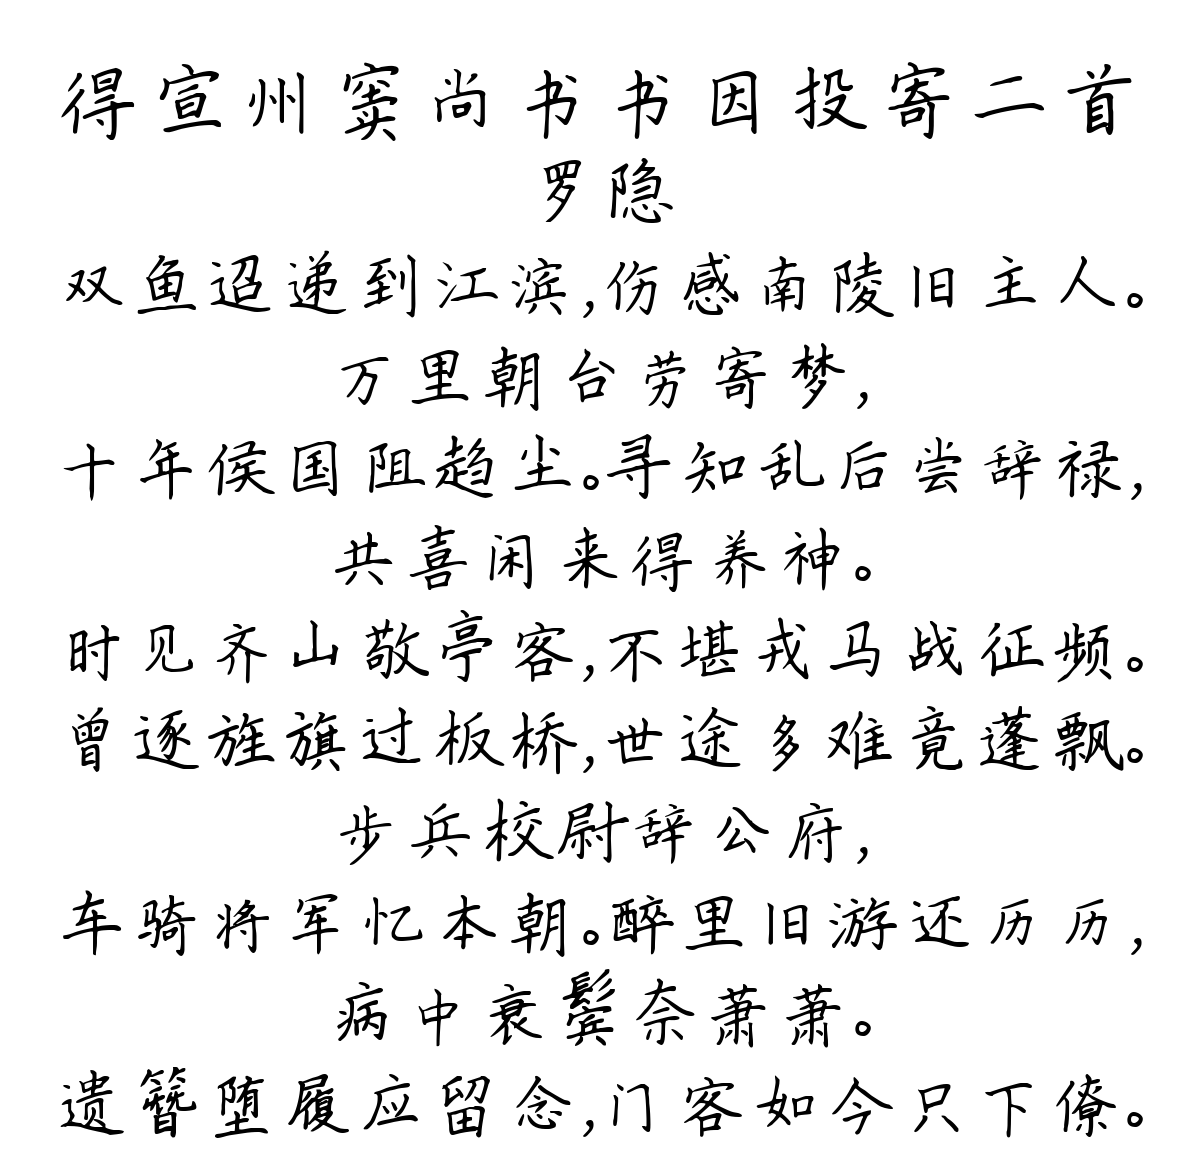 得宣州窦尚书书因投寄二首
罗隐
双鱼迢递到江滨,伤感南陵旧主人。
万里朝台劳寄梦,
十年侯国阻趋尘。寻知乱后尝辞禄,
共喜闲来得养神。
时见齐山敬亭客,不堪戎马战征频。
曾逐旌旗过板桥,世途多难竟蓬飘。
步兵校尉辞公府,
车骑将军忆本朝。醉里旧游还历历,
病中衰鬓奈萧萧。
遗簪堕履应留念,门客如今只下僚。